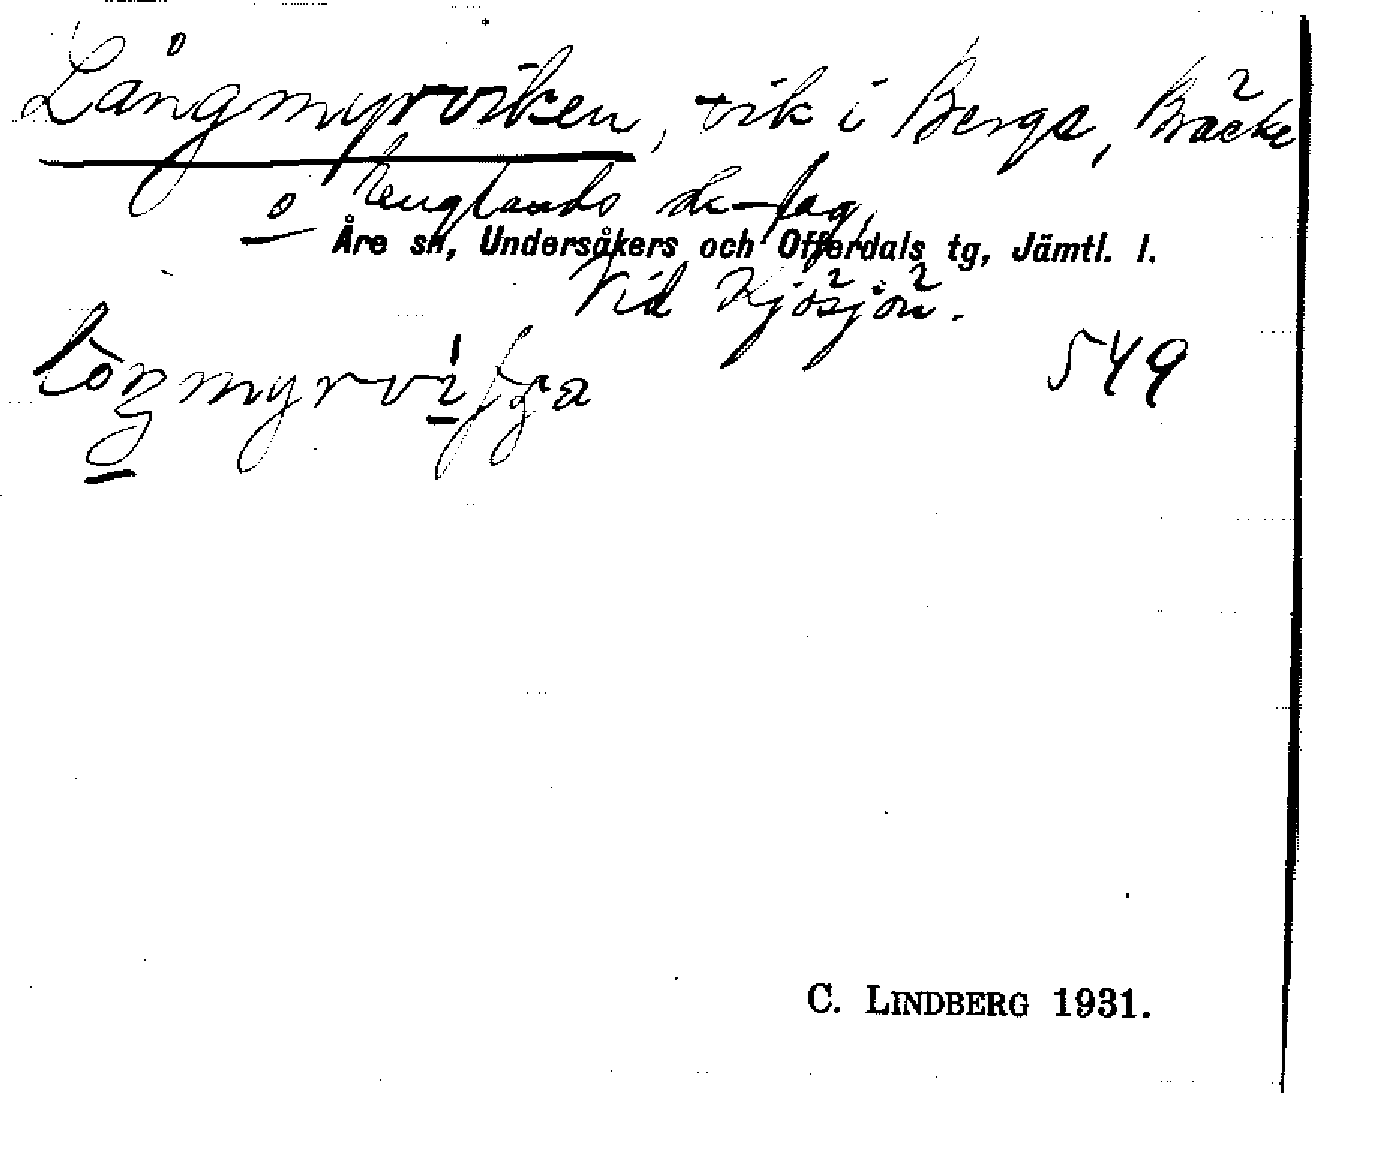 Långmyrviken, vik i Bergs, Bräcke
o Renglands sk-lag,
Åre sn, Undersåkers och Offerdals tg, Jämtl. l.
Vid Kjösjön.
549
C. LINDBERG 1931.